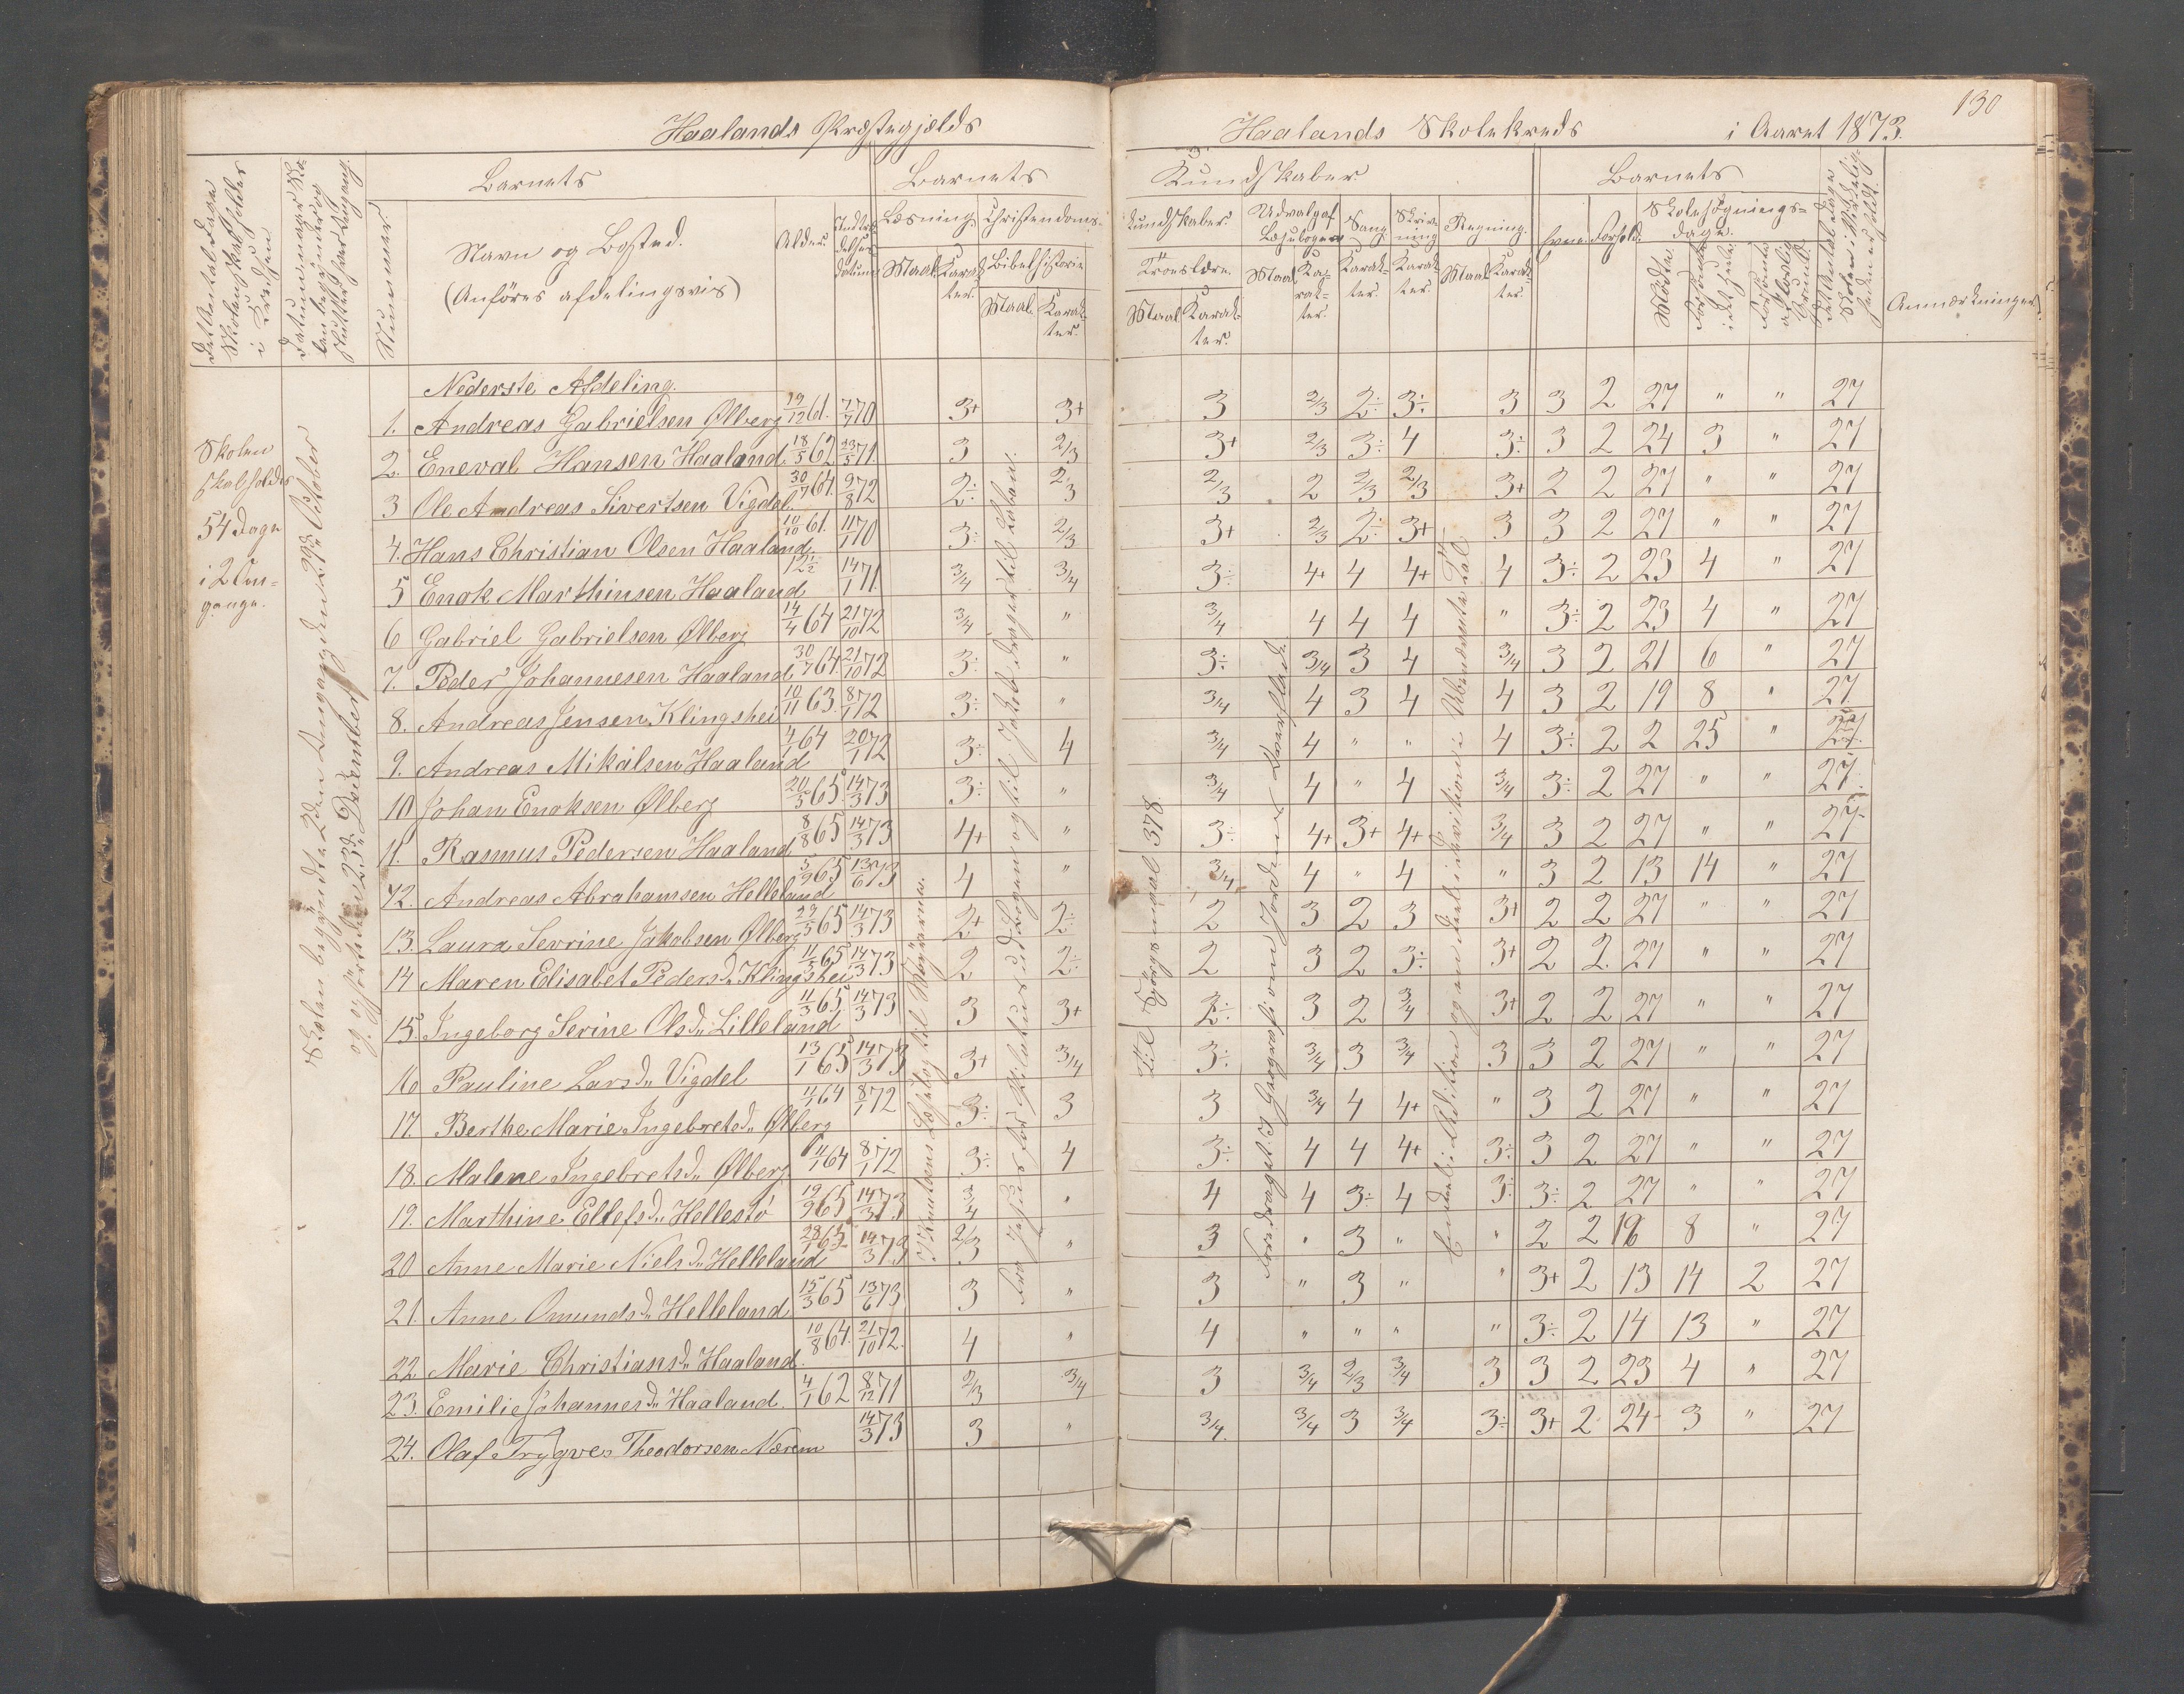 130
Haalands Præstegjælds Haalands Skolekreds i Aaret 1873.
Det Antal Dage Skolen skal holdes i Kredsen
Datum naar Skolen begynder og slutter hver Omgang.
Nummer
Barnets
Navn og Bosted.
(Anföres afdelingsvis)
Alder.
Indtrædelses datum
Barnets Kundskaber.
Læsning.
Maal. Karakter.
Christendoms- kundskaber.
Bibelhistorie
Maal. Karakter.
Troeslære.
Maal. Karakter.
Udvalg af Læsebogen
Maal Karakter.
Sang.
Karakter.
Skrivning
Karakter.
Regning.
Maal Karakter.
Barnets
Evne. Forhold.
Skolesøgningsdage.
Mødte.
Forsømte i det Hele.
Forsømte af lovlig Grund.
Det Antal Dage Skolen i Virkeligheden er holdt.
Anmærkninger.
Skolen skal holdes 54 Dage i 2 Omgange.
Skolen begyndte 2den Omgang den 29de October
og ophörte den 23de December
Nederste Afdeling.
1. Andreas Gabrielsen Ølberg 19/12 61. 7/7 70 3+ 3+ 3 2/3 2÷ 3÷ 3 3 2 27 " " 27
2. Eneval Hansen Haaland 18/5 62 23/5 71. 3 2/3 3+ 2/3 3÷ 4 3÷ 3 2 24 3 " 27
3 Ole Andreas Sivertsen Vigdel 30/7 61. 9/8 72 2÷ 2/3 2/3 2 2/3 2/3 3+ 2 2 27 " " 27
4. Hans Christian Olsen Haaland. 10/10 61. 11/1 70 3÷ 2/3 3+ 2/3 2÷ 3+ 3 3 2 27 " " 27
5 Enok Marthinsen Haaland 12 1/2 14/1 71. 3/4 3/4 3÷ 4+ 4 4+ 4 3÷ 2 23 4 " 27
6 Gabriel Gabrielsen Ølberg 14/4 64 21/10 72 3/4 " 3/4 4 4 4 " 3÷ 2 23 4 " 27
7. Peder Johannesen Haaland 30/7 64. 21/10 72 3÷ " 3÷ 3/4 3 4 3/4 3 2 21 6 " 27
8. Andreas Jensen Klingshei 10/11 63. 8/1 72 3÷ " 3/4 4 3 4 4 3 2 19 8 " 27
9. Andreas Mikalsen Haaland 4/1 64 20/1 72 3÷ 4 3/4 4 " " 4 3÷ 2 2 25 " 27
10 Johan Enoksen Ølberg 20/5 65. 14/3 73 3÷ " 3/4 4 " 4 3/4 3÷ 2 27 " " 27
11. Rasmus Pedersen Haaland 8/8 65 14/3 73 4+ " 3÷ 4+ 3+ 4+ 3/4 3 2 27 " " 27
12. Andreas Abrahamsen Helleland 5/9 65 13/6 73 4 " 3/4 4 " 4 " 3 2 13 14 " 27
13. Laura Sevrine Jakobsen Ølberg 29/5 65 14/3 73 2+ 2÷ 2 3 2 3 3+ 2 2 27 " " 27
14 Maren Elisabet Pedersd. Klingshei 11/3 65 14/3 73 2 2÷ 2 3 2 3÷ 3+ 2 2. 27 " " 27
15. Ingeborg Serine Olsd. Lilleland 11/3 65 14/3 73 3 3+ 2÷ 3 2 3/4 3+ 2 2 27 " " 27
16 Pauline Larsd. Vigdel 13/1 65 14/3 73 3+ 3/4 3÷ 3/4 3 3/4 3 3 2 27 " " 27
17. Berthe Marie Ingebretsd. Ølberg 4/1 64 8/1 72 3÷ 3 3 3/4 4 4+ " 3 2 27 " " 27
18. Malene Ingebretsd. Ølberg 4/1 64 8/1 72 3÷ 4 3÷ 4 4 4+ 3÷ 3 2 27 " " 27
19. Marthine Ellefsd. Hellestö 19/9 65 14/3 73 3/4 " 4 4 3÷ 4 3÷ 3÷ 2 27 " " 27
20 Anne Marie Nielsd. Helleland 28/1 65 14/3 73 2/3 " 3 " 3 " " 2 2 18 8 " 27
21. Anne Omundsd. Helleland 15/3 65 13/6 73 3 " 3 " 3 " " 3+ 2 13 14 2 27
22. Marie Christiansd. Haaland. 10/8 64. 21/10 72. 4 " 4 " " " " 3÷ 2 14 13 " 27
23. Emilie Johannesd. Haaland. 4/1 62 8/12 71 2/3 3/4 3 3/4 2/3 3/4 3 3 2 23 4 " 27
24. Olaf Trygves Theodorsen Nærem 14/3 73 3 " 3/4 3/4 3 3/4 3÷ 3+ 2 24 3 " 27
I Knudsens Læsebog til
Fra Jesus for Pilatus ud Bogen og til Johs. drager til
Til Spörgsmaal 378.
Foredraget: I Geografi om Jordens Overflade.
Endeel i Addition og en Deel i Division i Ubenævnte Tal.